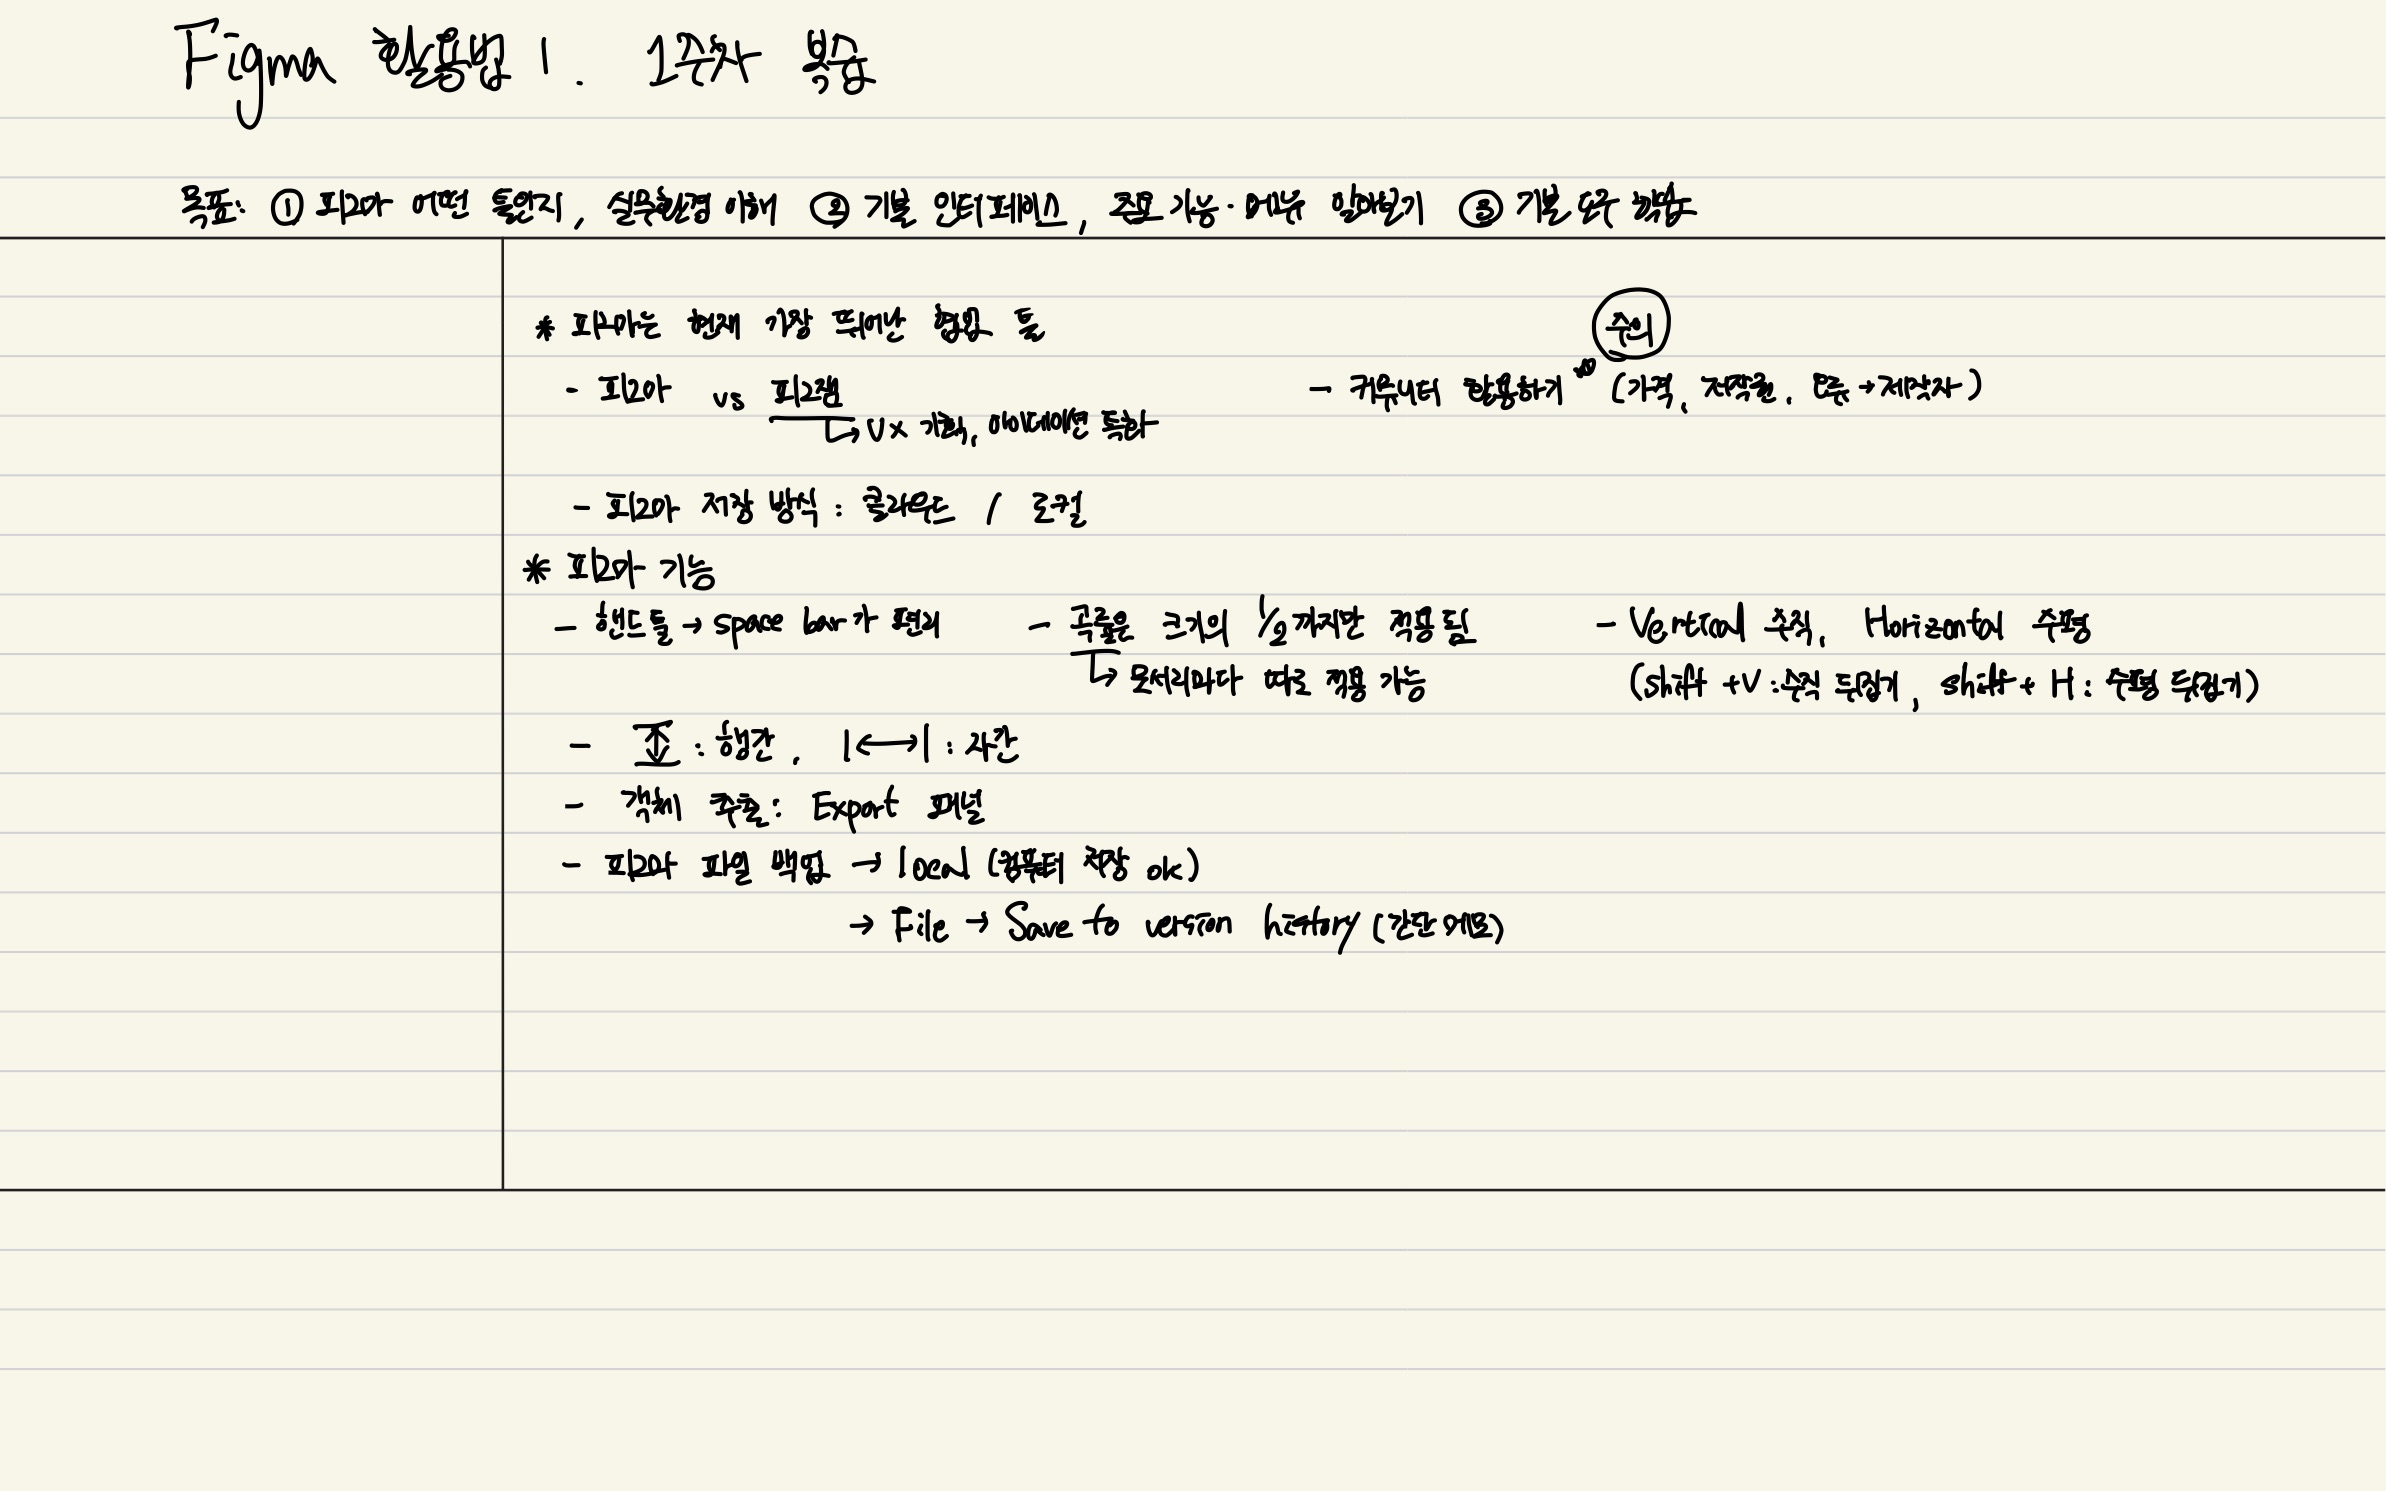 Figma 활용법 1. 1주차 복습
목표: ① 피그마 어떤 툴인지, 실무환경 이해 ② 기본 인터페이스, 주요 기능·메뉴 알아보기 ③ 기본 도구 학습
* 피그마는 현재 가장 뛰어난 협업 툴
주의
- 피그마 vs 피그잼
- 커뮤니티 활용하기 (가격, 저작권, 오류→제작자)
↳ UX 기획, 아이데이션 특화
- 피그마 저장 방식 : 클라우드 / 로컬
* 피그마 기능
- 핸드툴 → space bar가 편리
- 곡률은 크기의 1/2까지만 적용 됨
- Vertical 수직, Horizontal 수평
↳ 모서리마다 따로 적용 가능
(shift +V : 수직 뒤집기, shift + H : 수평 뒤집기)
- : 행간, |↔| : 자간
- 객체 추출 : Export 패널
- 피그마 파일 백업 → local (컴퓨터 저장 ok)
→ File → Save to version history (간단 메모)